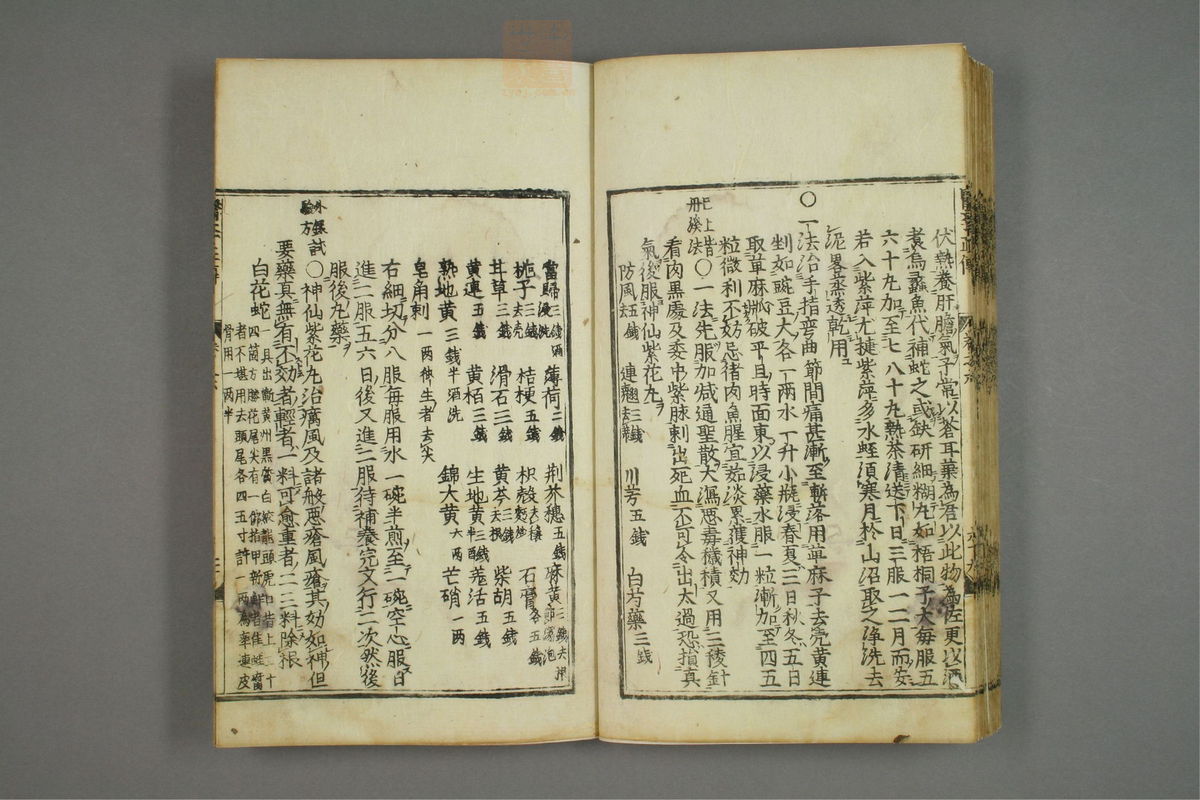 伏熱養肝膽氣予常以蒼耳葉為君以此物為佐更以酒
煮烏蠡魚代補蛇之或缺研細糊丸如梧桐子大每服五
六十丸加至七八十丸熟茶清送下日三服一二月而安
若入紫萍尤捷紫萍多水蛭須寒月於山沼取之淨洗去
泥畧蒸透乾用
〇一法治手指弯曲節間痛甚漸至斷落用草麻子去壳黄連
剉如豌豆大各一兩水一升小瓶浸春夏三日秋冬五日
取草麻㼎破平旦時面東以浸藥水服一粒漸加至四五
粒微利不妨忌猪肉魚腥宜茹淡累獲神効
已上皆
丹溪法
〇一法先服加减通聖散大瀉悪毒穢積又用三稜針
看肉黒處及委中紫脉刺出死血不可令出太過恐損真
氣後服神仙紫花丸
防風五錢 連翹三錢 川芎五錢 白芍藥三錢
當歸三錢酒浸洗 薄荷三錢 荆芥穗五錢 麻黄
梔子三錢去壳 桔梗五錢 枳殼去穰麩炒 石膏各五錢
甘草三錢 滑石三錢 黄芩三錢 柴胡五錢
黄連五錢 黄栢三錢 生地黄三錢 羗活五錢
熟地黄三錢半酒洗 錦大黄六兩 芒硝一兩
皂角刺一兩 生者去尖
右細切分八服每服用水一碗半煎至一碗空心服日
進二服五六日後又進二服待補養完又行二次然後
服後丸藥
外録試
驗方
〇神仙紫花丸治癘風及諸般悪瘡風瘡其妙如神但
要藥真無有不効者輕者一料可愈重者二三料除根
白花蛇 具出蘄黄州黒質白紋龍頭虎口背上二十
四箇方勝花尾尖有一佛指甲
者不堪用去頭尾各四五寸許一兩為率連皮
骨用一兩半